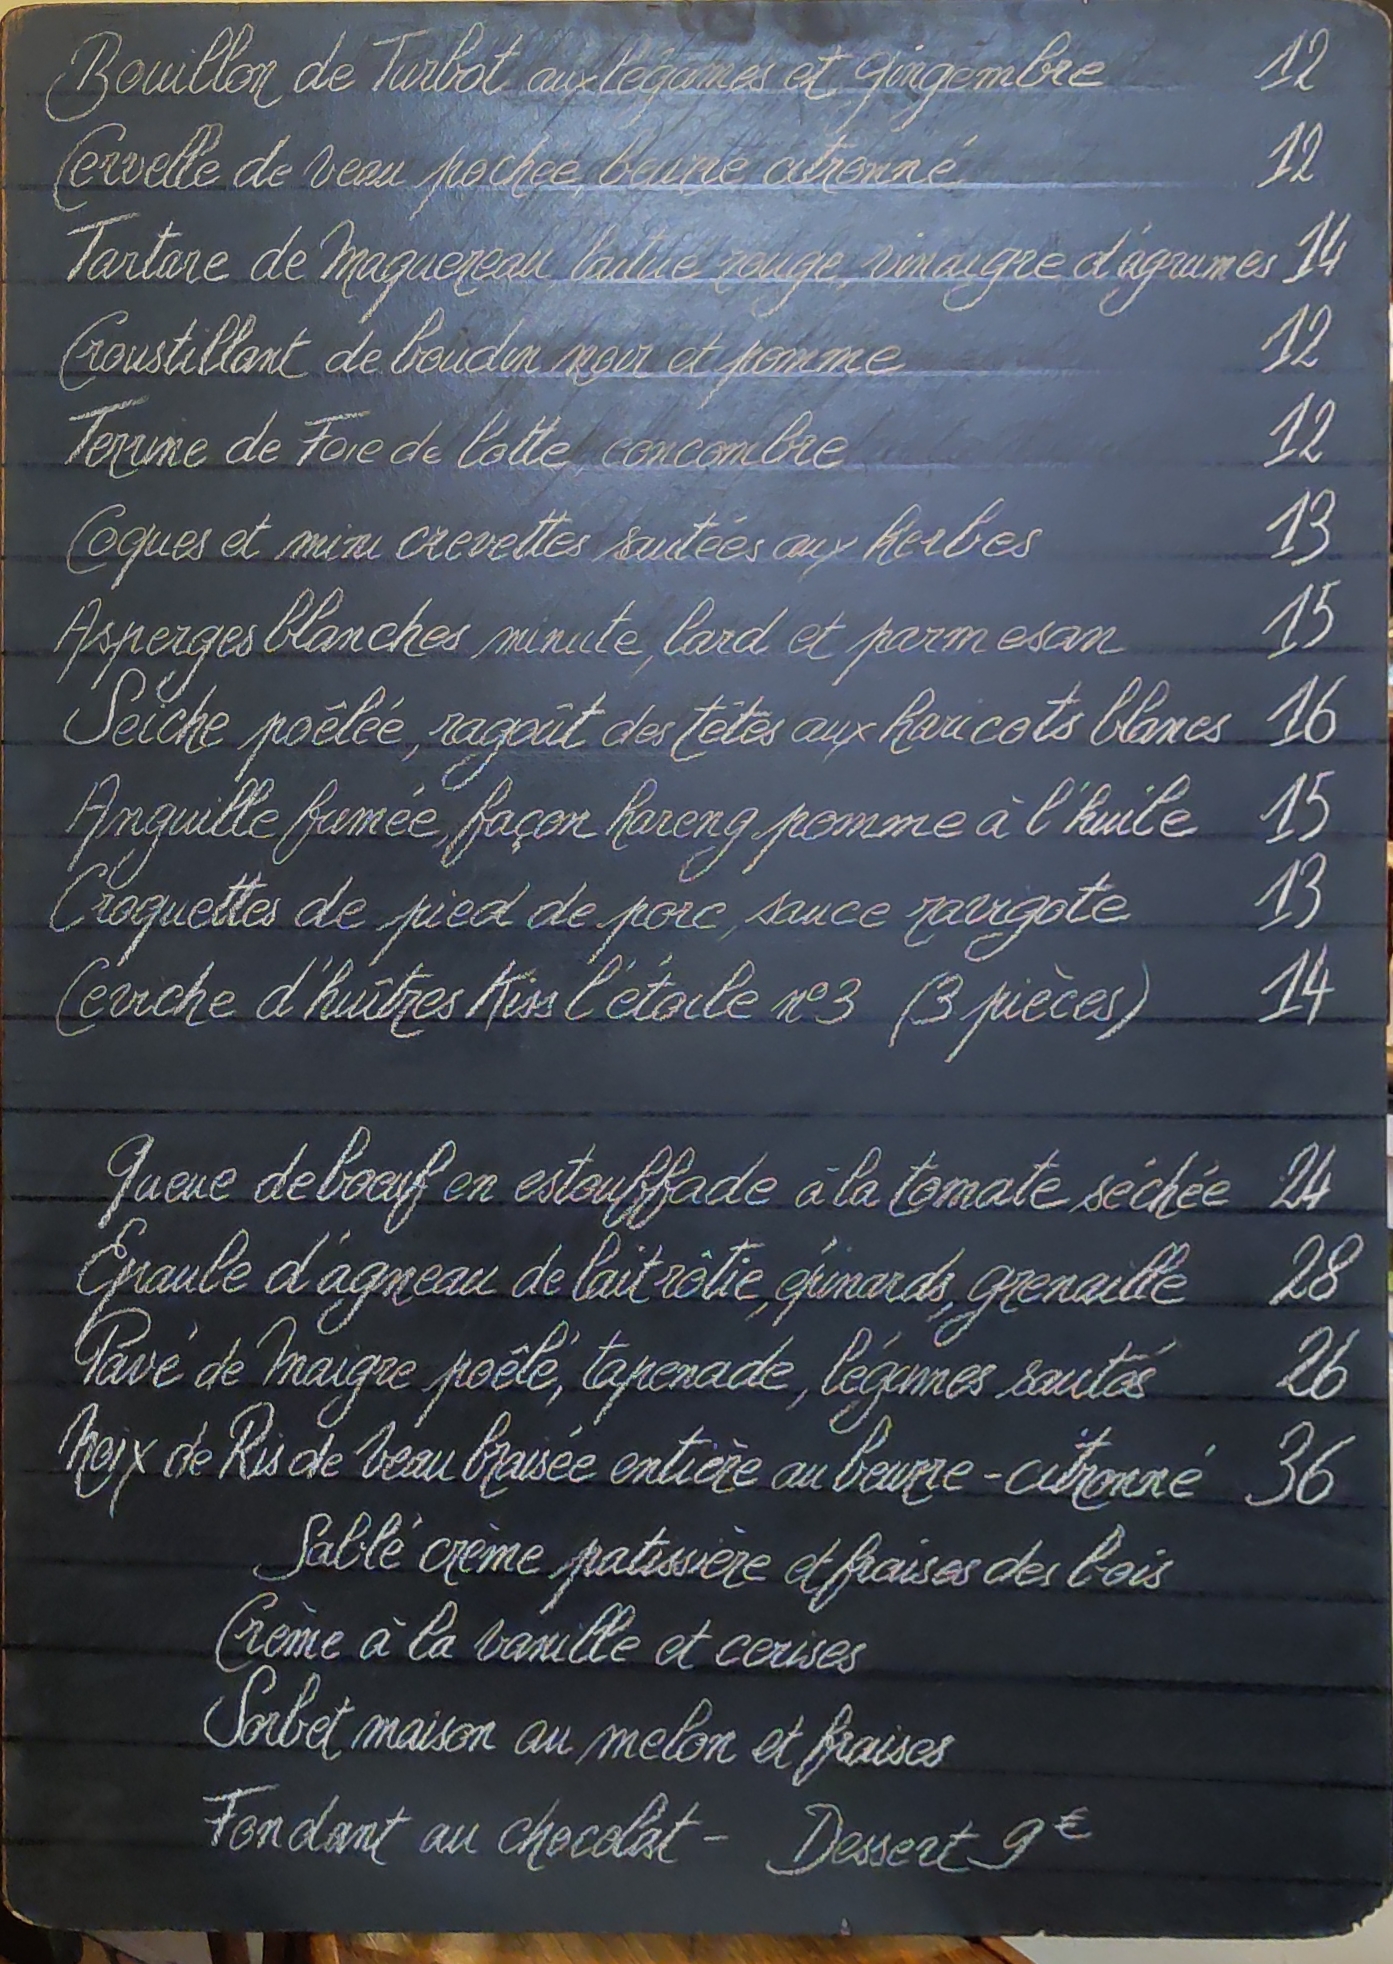 Bouillon de Turbot aux légumes et gingembre 12
Cervelle de veau pochée, beurre citronné 12
Tartare de Maquereau, laitue rouge, vinaigre d'agrumes 14
Croustillant de boudin noir et pomme 12
Terrine de Foie de lotte, concombre 12
Coques et mini crevettes sautées aux herbes 13
Asperges blanches minute, lard et parmesan 15
Seiche poêlée, ragoût des têtes aux haricots blancs 16
Anguille fumée, façon hareng pomme à l'huile 15
Croquettes de pied de porc, sauce ravigote 13
Ceviche d'huîtres Kiss l'étoile n°3 (3 pièces) 14
Queue de boeuf en estouffade à la tomate séchée 24
Épaule d'agneau de lait rôtie, épinards, grenaille 28
Pavé de Maigre poêlé, tapenade, légumes sautés 26
Noix de Ris de Veau braisée entière au beurre-citronné 36
Sablé crème patissière et fraises des bois
Crème à la vanille et cerises
Sorbet maison au melon et fraises
Fondant au chocolat - Dessert 9€